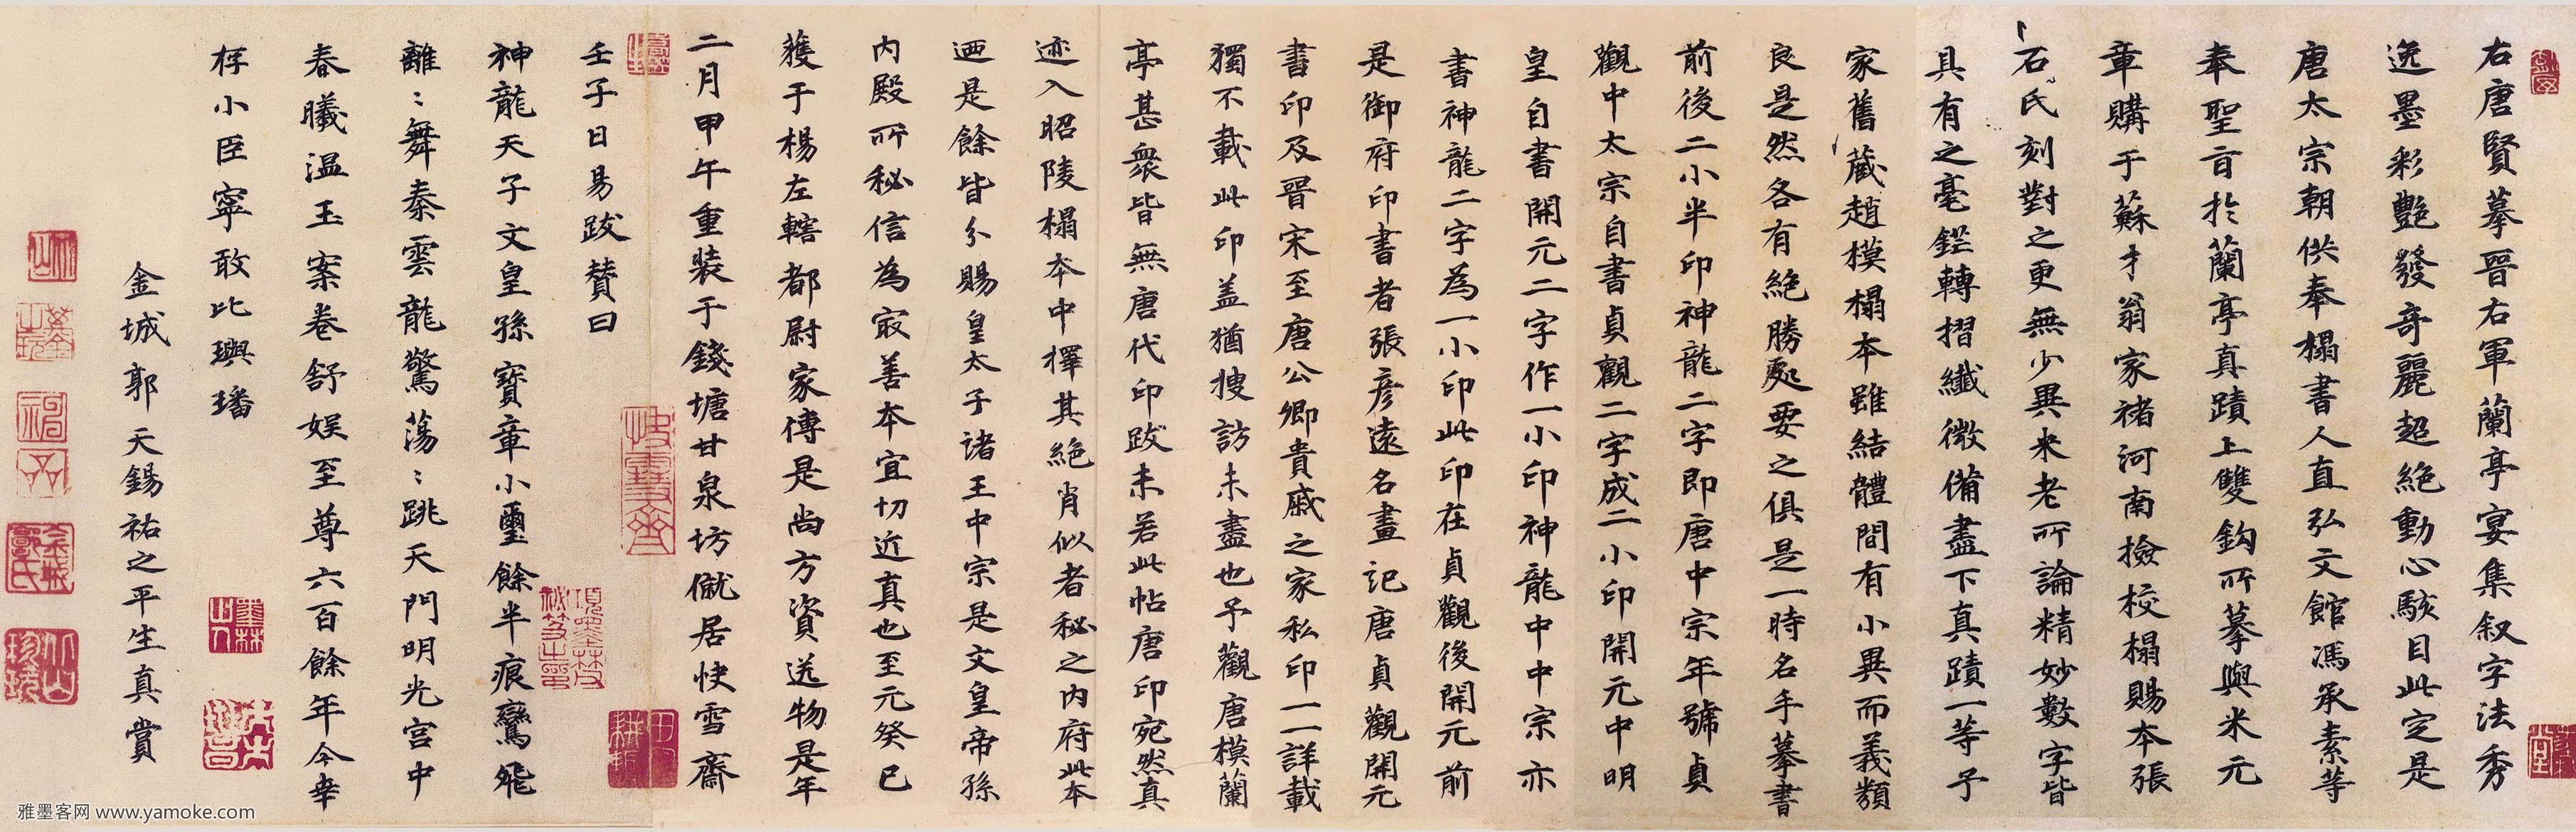 右唐賢摹晉右軍蘭亭宴集叙字法秀
逸墨彩艷發奇麗超絕動心駭目此定是
唐太宗朝供奉榻書人直弘文館馮承素等
奉聖旨於蘭亭真蹟上雙鈎所摹與米元
章購于蘇才翁家褚河南撿校榻賜本張
石氏刻對之更無少異米老所論精妙數字皆
具有之毫鋩轉摺纖微備盡下真蹟一等予
家舊藏趙模榻本雖結體間有小異而義類
良是然各有絕勝處要之俱是一時名手摹書
前後二小半印神龍二字即唐中宗年號貞
觀中太宗自書貞觀二字成二小印開元中明
皇自書開元二字作一小印神龍中中宗亦
書神龍二字為一小印此印在貞觀後開元前
是御府印書者張彦遠名畫記唐貞觀開元
書印及晉宋至唐公卿貴戚之家私印一一詳載
獨不載此印盖猶搜訪未盡也予觀唐模蘭
亭甚衆皆無唐代印跋未若此帖唐印宛然真
迹入昭陵榻本中擇其絕肖似者秘之内府此本
迺是餘皆分賜皇太子諸王中宗是文皇帝孫
内殿所秘信為寂善本宜切近真也至元癸巳
獲于楊左轄都尉家傳是尚方資送物是年
二月甲午重装于錢塘甘泉坊僦居快雪齋
壬子日易跋賛曰
神龍天子文皇孫寳章小璽餘半痕鸞飛
離〻舞秦雲龍驚蕩〻跳天門明光宫中
春曦温玉案卷舒娱至尊六百餘年今幸
存小臣寧敢比璵璠
金城郭天錫祐之平生真賞
快雪齋
項墨林父秘笈之印
雅墨客网 www.yamoke.com